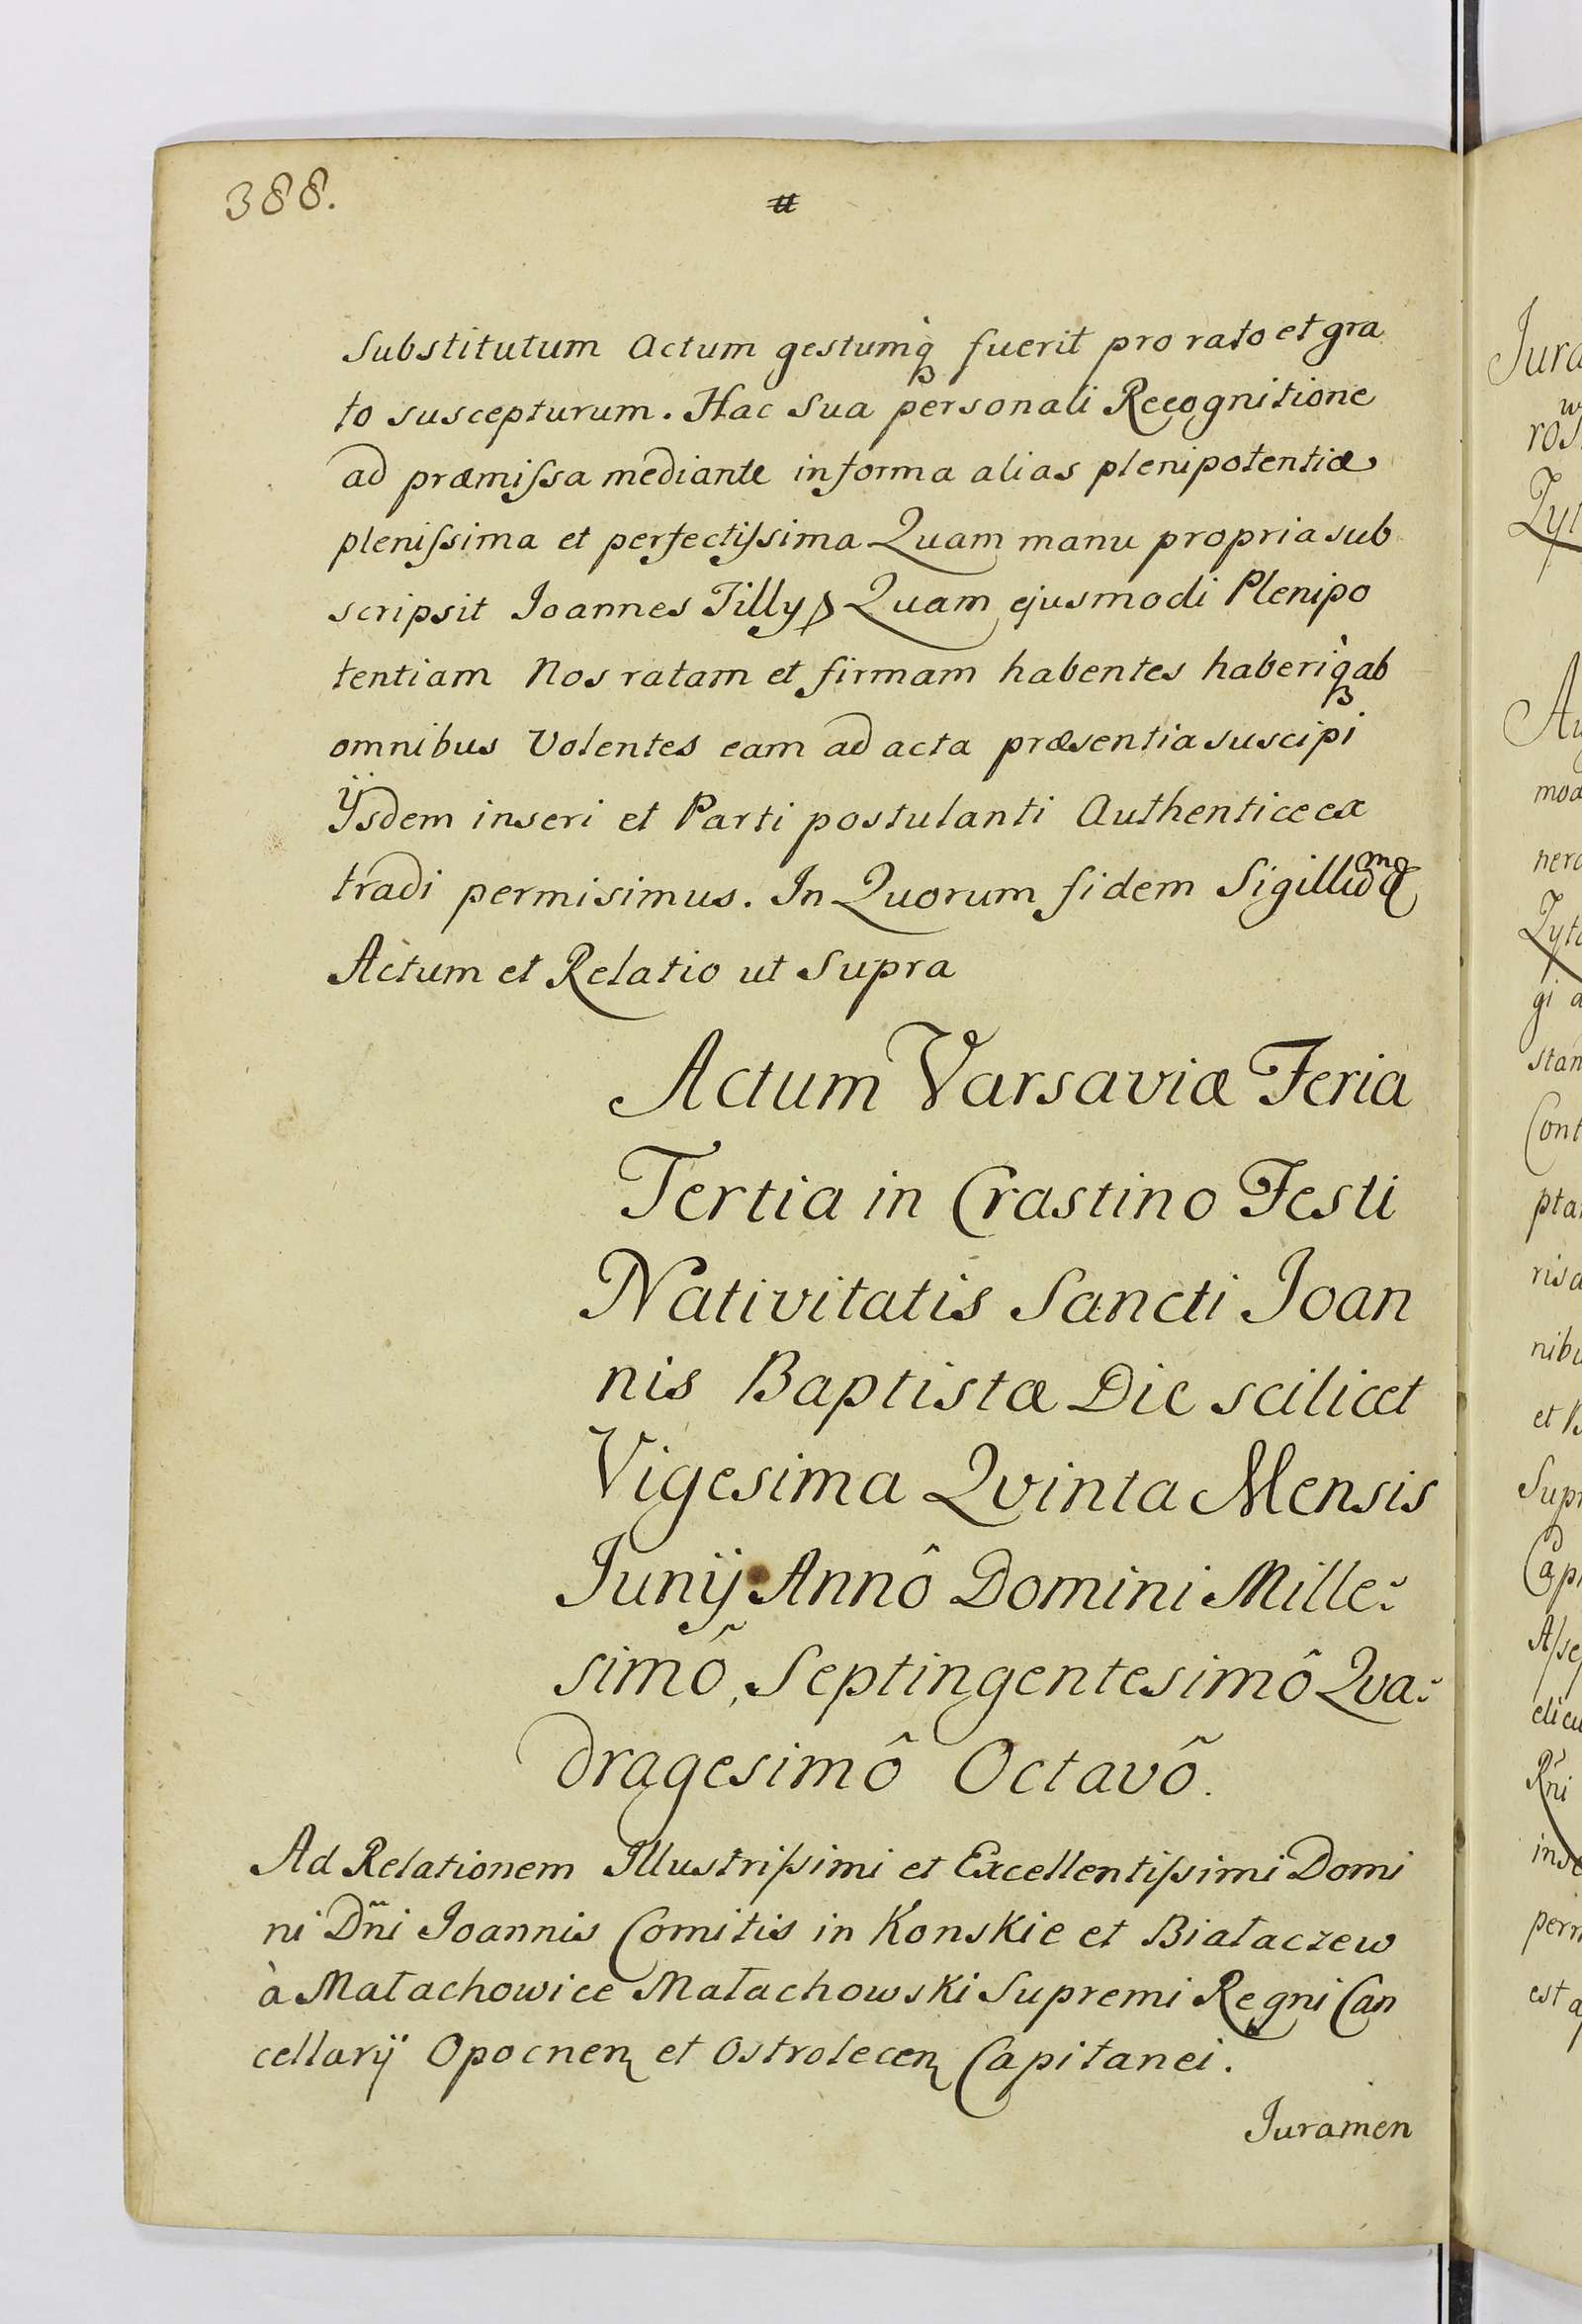 388.
substitutum Actum gestumq̀ꝫ fuerit pro rato et gra
to suscepturum. Hac Sua personali Recognitione
ad præmiſsa mediante in forma alias plenipotentiæ
pleniſsima et perfectiſsima Quam manu propria sub
scripsit Joannes Tilly Quam ejusmodi Plenipo
tentiam Nos ratam et firmam habentes haberiq̀ꝫ ab
omnibus Volentes eam ad acta præsentia suscipi
Ÿsdem inseri et Parti postulanti Authentice ex
tradi permisimus. In Quorum fidem
Actum et Relatio ut Supra
Actum Varsaviæ Feria
Tertia in Crastino Festi
Nativitatis Sancti Joan
nis Baptistæ Die scilicet
Vigesima Qvinta Mensis
Junij Annô Domini Mille:
simô, Septingentesimô Qva:
dragesimô Octavô.
Ad Relationem Illustriſsimi et Excellentiſsimi Domi
ni Dñi Joannis Comitis in Konskie et Białaczew
à Małachowice Małachowski Supremi Regni Can
cellarÿ Opocnen et Ostrolecen Capitanei.
Juramen
Jura
ros
Zyt
Au
mod
nera
Zyta
gi a
stan
Cont
pta
risd
nibu
et B
Supr
Capi
Aſse
elicu
Rñi
inse
perm
est a